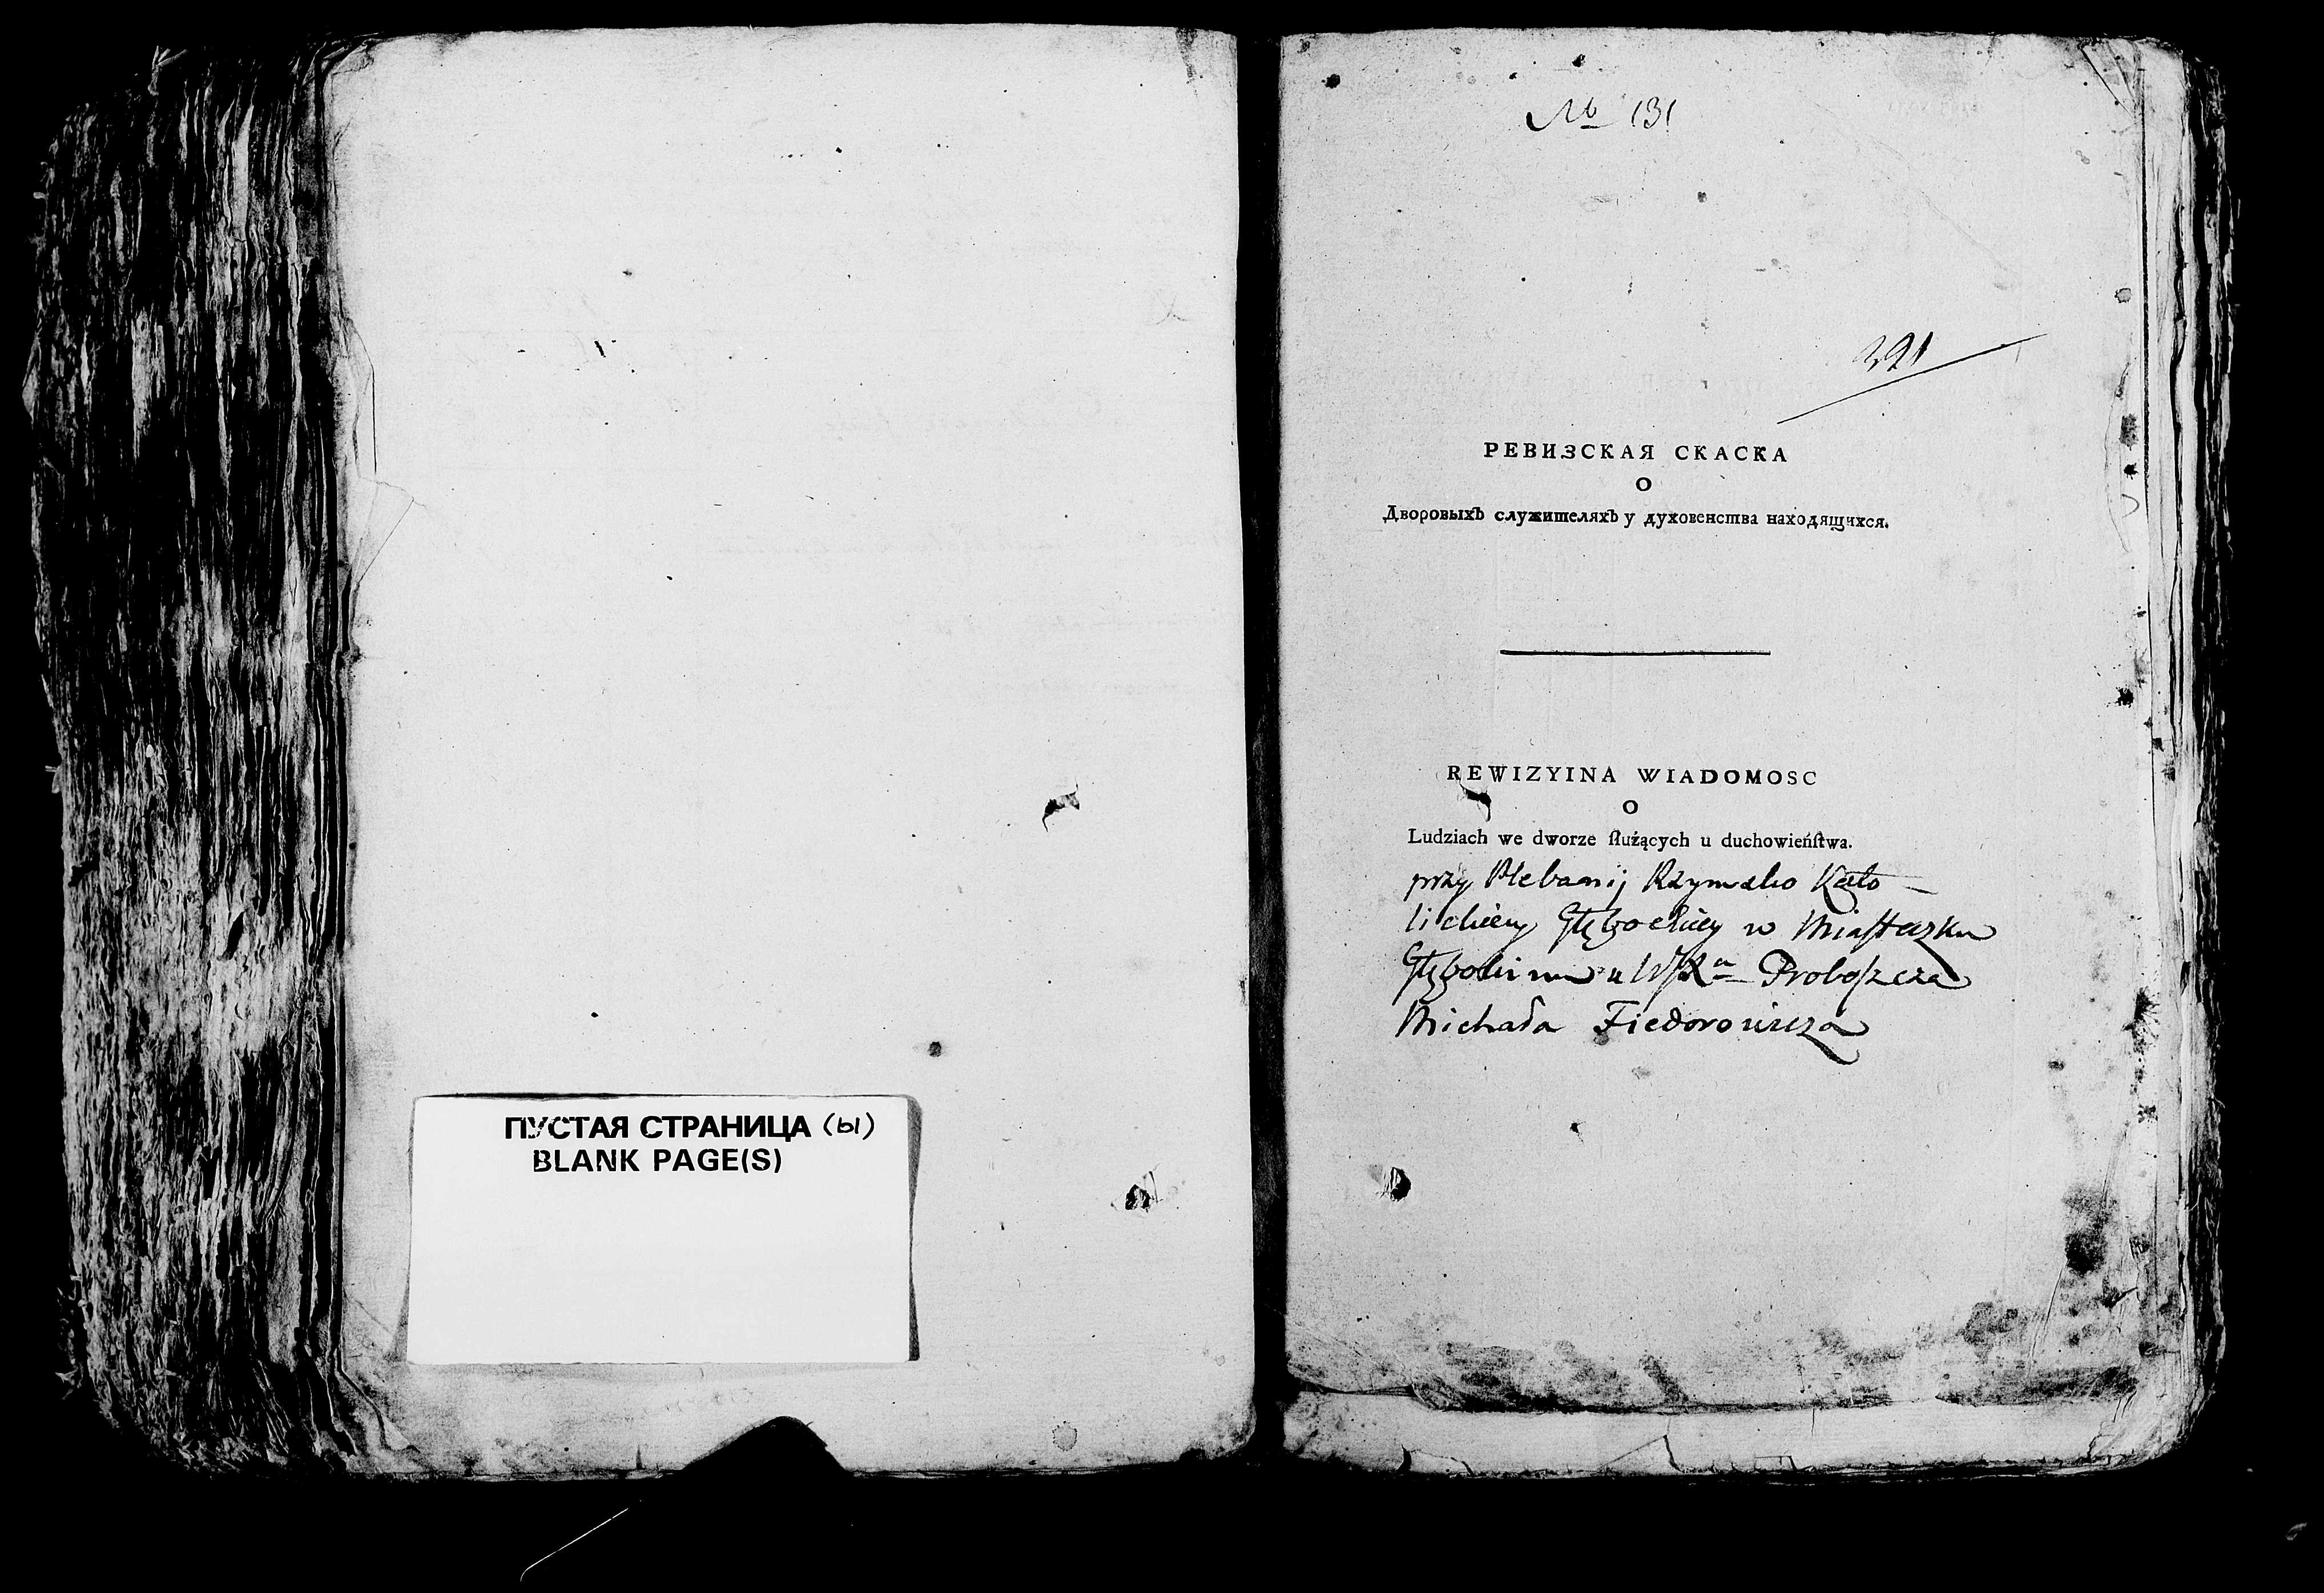 ПУСТАЯ СТРАНИЦА (ы)
BLANK PAGE(S)
№ 131
391
РЕВИЗСКАЯ СКАСКА
О
Дворовыхъ служителяхъ у духовенства находящихся.
REWIZYINA WIADOMOSC
O
Ludziach we dworze ſłużących u duchowieńſtwa.
przy Plebanij Rzymsko Kato-
lickiey Głębockiey w Miaſteczku
Głębokim u Proboſzcza
Michała Fiedorowicza